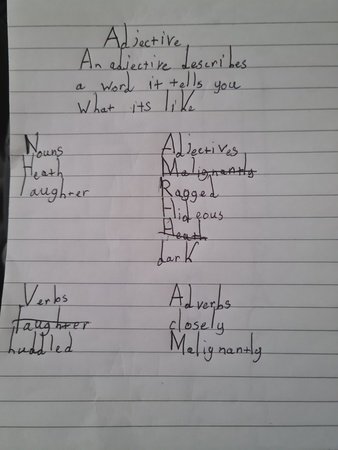 Adjective
An adjective describes
a word it tells you
What its like
Nouns
Heath
laughter
Adjectives
Malignantly
Ragged
Hideous
Heath
dark
Verbs
laughter
huddled
Adverbs
closely
Malignantly